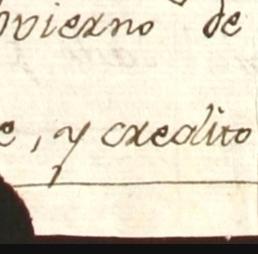 ovierno de
e, y credito